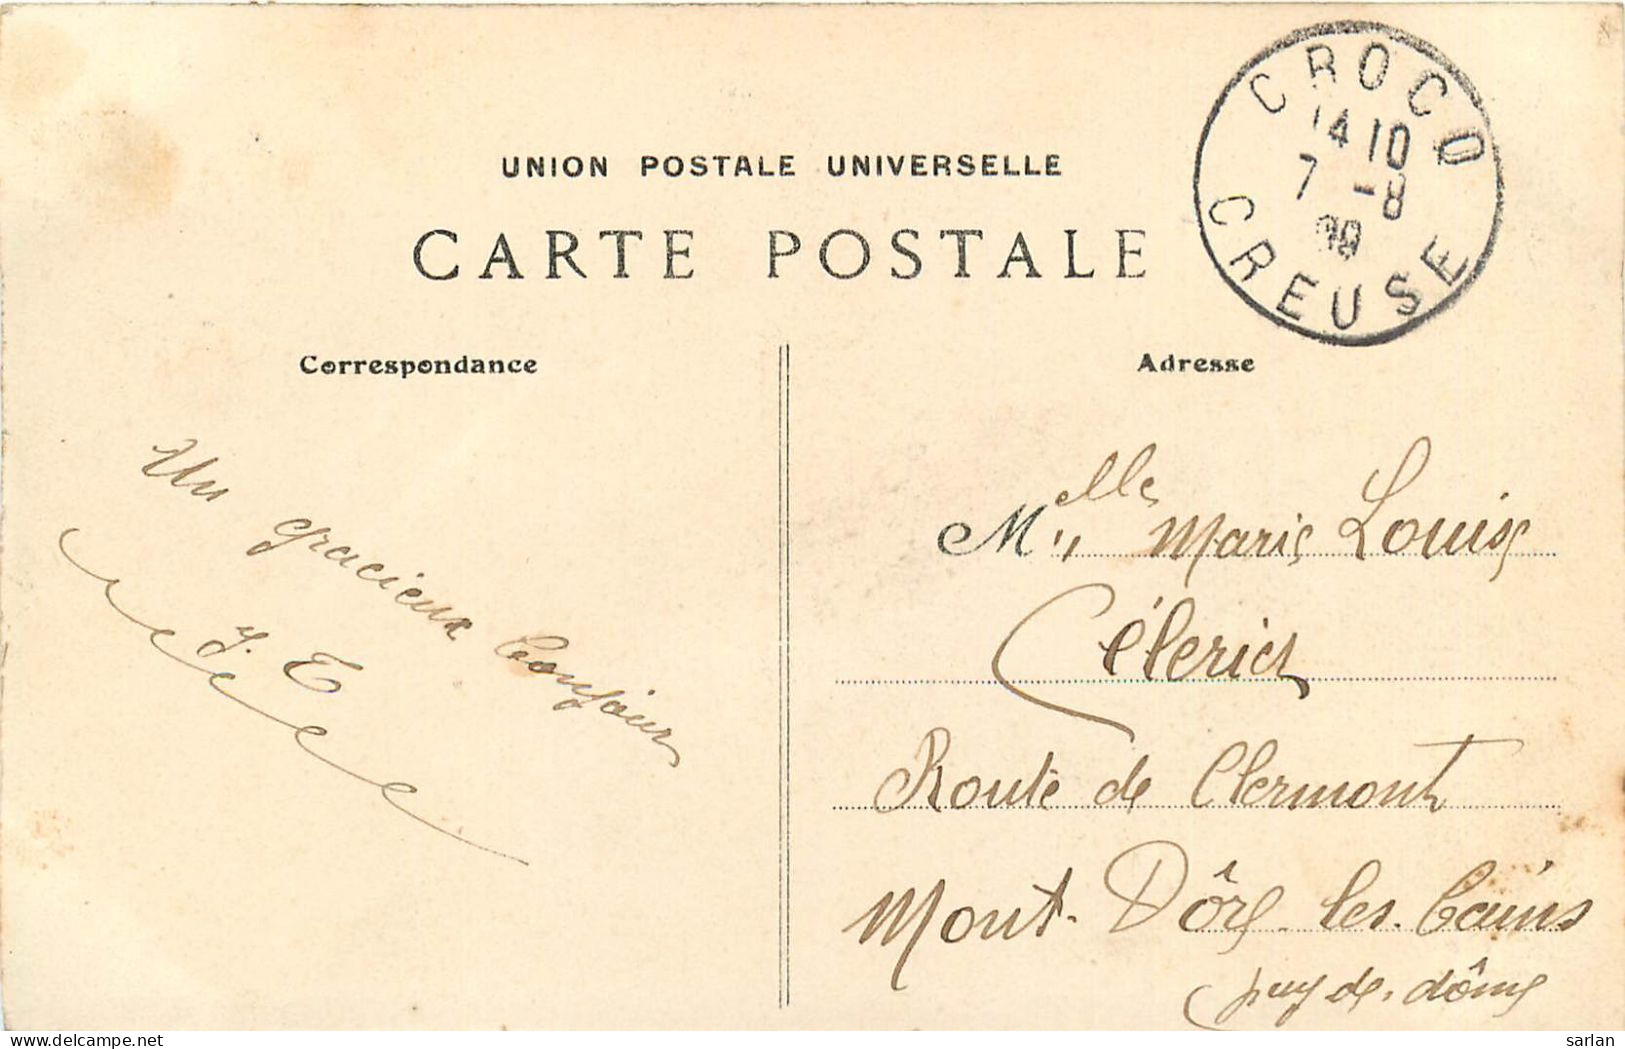 UNION POSTALE UNIVERSELLE
CARTE POSTALE
CROCQ
14 10
7 -8
CREUSE
Correspondance
Adresse
Un gracieux bonjour
J. T
Melle Marie Louise
Célerier
Route de Clermont
Mont-Dôre-les-bains
puy-de-dôme
sarlan